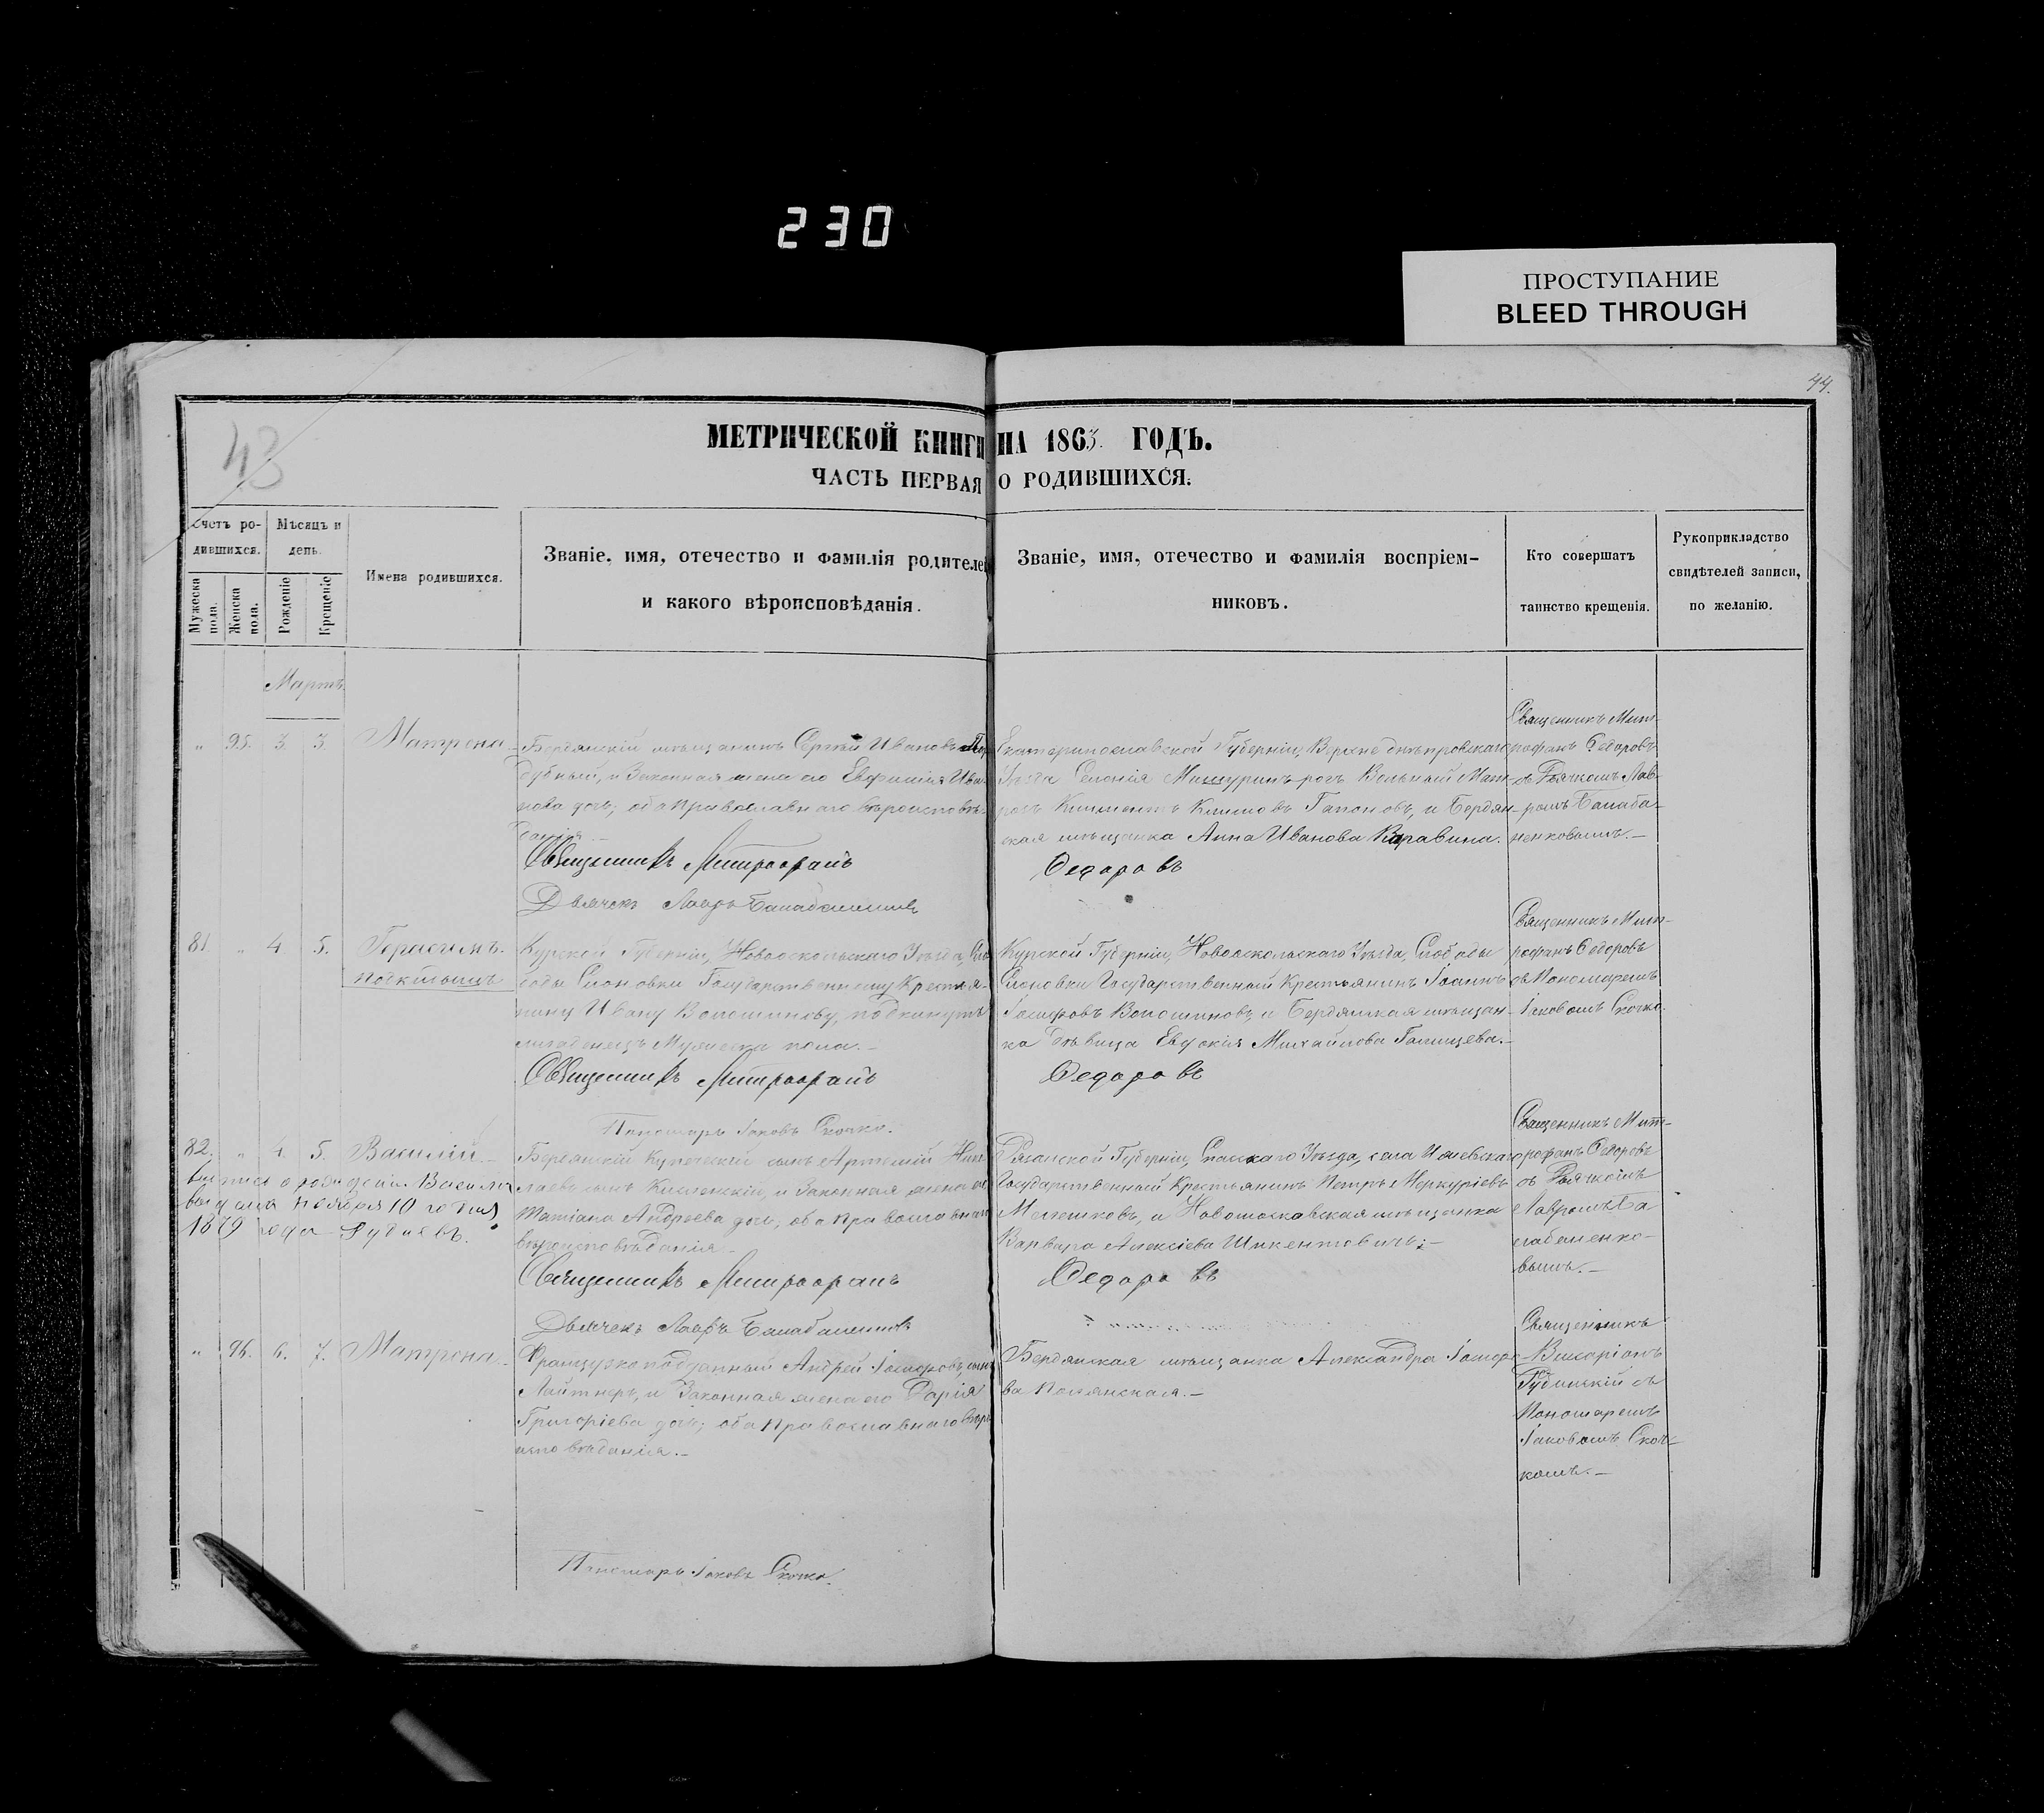 230
ПРОСТУПАНИЕ
BLEED THROUGH
44.
43
МЕТРИЧЕСКОЙ КНИГИ НА 1863. ГОДЪ.
ЧАСТЬ ПЕРВАЯ О РОДИВШИХСЯ.
Счетъ ро-
дившихся.
Мѣсяцъ и
день.
Мужеска
пола.
Женска
пола.
Рожденіе
Крещеніе
Имена родившихся.
Званіе, имя, отечество и фамилія родителей
и какого вѣроисповѣданія.
Званіе, имя, отечество и фамилія воспріем-
никовъ.
Кто совершатъ
таинство крещенія.
Рукоприкладство
свидѣтелей записи,
по желанію.
Мартъ
„ 95. 3. 3. Матрона
Бердянскій мѣщанинъ Сергѣй Ивановъ
дубный, и Законная жена его Евфимія Ива-
нова дочь; оба Православнаго вѣроисповѣ-
данія.
Священникъ Митрофанъ Федоровъ
Дьячекъ Лавръ
Екатеринославской Губерніи, Верхне днѣпровскаго
Уѣзда Селенія Мишуринъ-рогъ Вольный Мат-
росъ Климентъ Климовъ Гапоновъ, и Бердян-
ская мѣщанка Анна Иванова Каравина.
Священникъ Мит-
рофанъ Федоровъ
съ Дьячкомъ Лав-
ромъ Балаба-
ненковымъ.
81. „ 4 5. Герасимъ.
подкидышъ
Курской Губерніи, Новооскольскаго Уѣзда, Сло-
боды Слоновки Государственному Крестья-
нину Ивану Волошинову, подкинутъ
младенецъ Мужеска пола.
Священникъ Митрофанъ Федоровъ
Пономарь Іаковъ Скочко.
Курской Губерніи, Новооскольскаго Уѣзда, Слободы
Слоновки Государственный Крестьянинъ Іоаннъ
Волошиновъ, и Бердянская мѣщан-
ка Дѣвица Евдокія Михайлова Голищева.
Священникъ Мит-
рофанъ Федоровъ
съ Пономаремъ
Іаковомъ Скочко.
82. „ 4. 5. Василій
о рожденіи Василія
выдана Ноября 10 го дня
1879 года
Бердянскій Купеческій сынъ Артемій Нико-
лаевъ сынъ и Законная жена его
Татіана Андреева дочь; оба Православнаго
вѣроисповѣданія
Священникъ Митрофанъ Федоровъ
Дьячекъ Лавръ
Рязанской Губерніи, Спасскаго Уѣзда, села Ижевскаго
Государственный Крестьянинъ Петръ Меркуріевъ
Мелешковъ, и Новомосковская мѣщанка
Варвара Алексіева Шикентовичъ;
Священникъ Мит-
рофанъ Федоровъ
съ Дьячкомъ
Лавромъ Ба
лабаненко-
вымъ.
„ 96. 6. 7. Матрона
Французкоподданный Андрей сынъ
Лайтнеръ, и Законная жена его Дарія
Григоріева дочь; оба Православнаго вѣро-
исповѣданія.
Пономарь Іаковъ Скочко.
Бердянская мѣщанка Александра
ва Полянская.
Священникъ
Виссаріонъ
съ
Пономаремъ
Іаковомъ Скоч-
комъ.